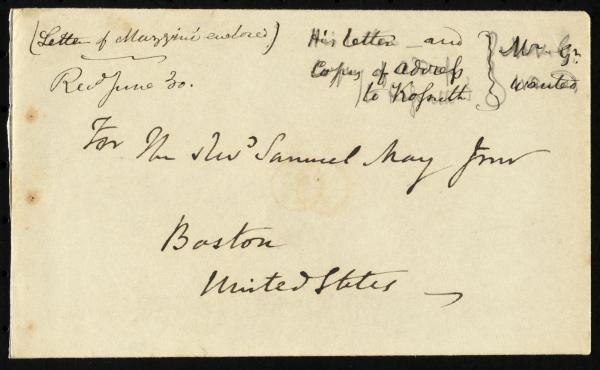 (Letter of Mazzini's enclosed)
Recd June 30.
His letter and
Copy of address
to Kossuth
Mr. G.
wanted
For The Revd Samuel May Junr
Boston
United States